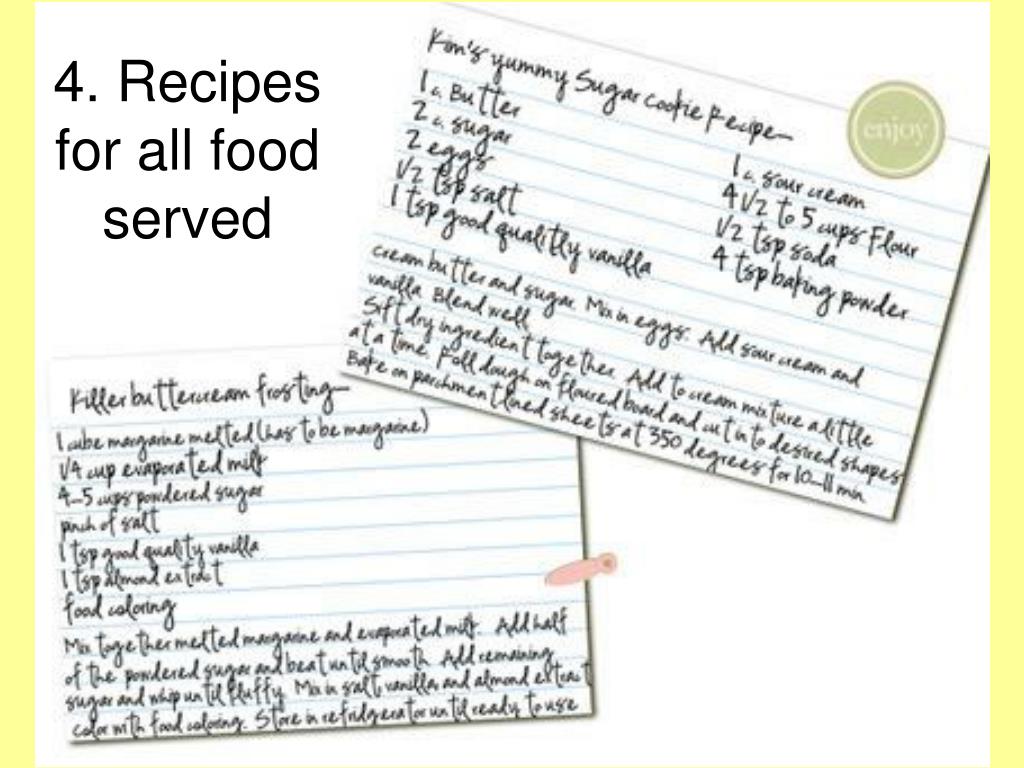 4. Recipes
for all food
served
Kim's yummy Sugar Cookie Recipe
1 c. Butter
2 c. sugar
2 eggs
1/2 tsp salt
1 tsp good qualitly vanilla
1 c. sour cream
4 1/2 to 5 cups Flour
1/2 tsp soda
4 tsp baking powder
cream butter and sugar. Mix in eggs. Add sour cream and
vanilla. Blend well.
Sift dry ingredient together. Add to cream mixture a little
at a time. Roll dough on floured board and cut in to desired shapes
Bake on parchment lined sheets at 350 degrees for 10-11 min.
enjoy
Killer buttercream frosting
1 cube margarine melted (has to be margarine)
1/4 cup evaporated milk
4-5 cups powdered sugar
pinch of salt
1 tsp good quality vanilla
1 tsp almond extract
food coloring
Mix together melted margarine and evaporated milk. Add half
of the powdered sugar and beat until smooth. Add remaining
sugar and whip until fluffy. Mix in salt, vanilla and almond extract
color with food coloring. Store in refridgerator until ready to use